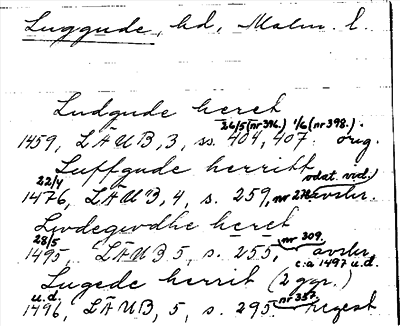 Luggude, hd, Malm. l.
Ludgude heret
26/5 (nr 396.) 1/6 (nr 398.)
1459, LÄUB, 3, ss. 404, 407. orig.
Luffgude herritt
22/4 odat. vid.)
1476, LÄUB, 4, s. 259, nr 270 avskr.
Livdegwdhe heret
28/5 nr 309,
1495 LÄUB 5, s. 255, avskr.
c:a 1497 u.d.
Lugede herrit (2 ggr.)
u.d. nr 357.
1496, LÄUB, 5, s. 295. regest